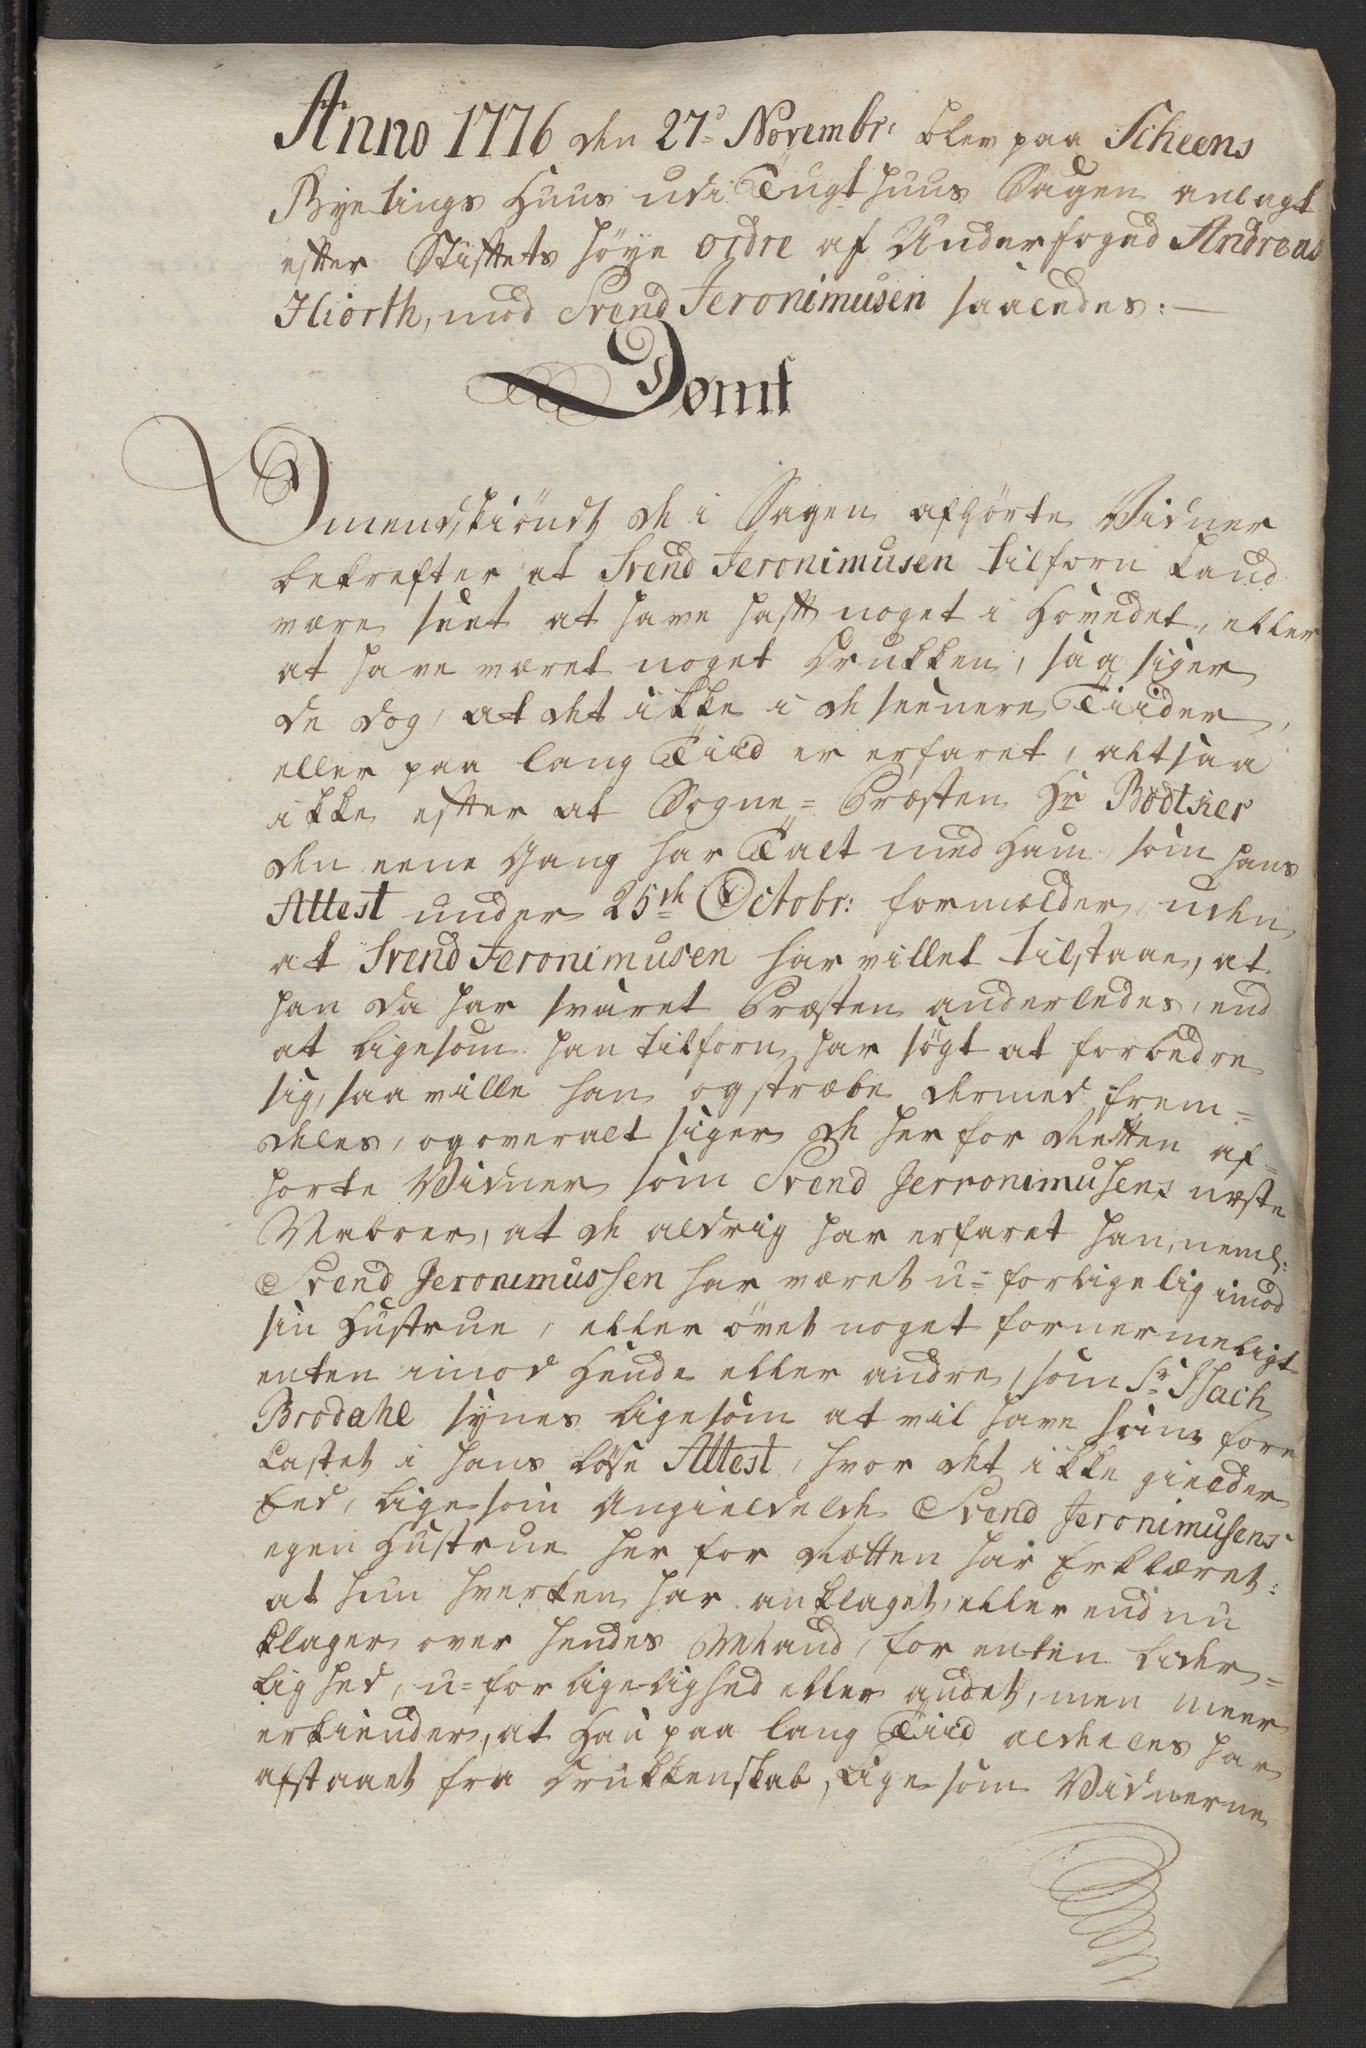 Anno 1776 den 27d Novembr: blev paa Scheens
Byetings Huus udi Tugthuus Sagen anlagt
efter Stiftets høye ordre af Underfoged Andreas
Hiorth, mod Svend Jeronimusen saaledes: —
Dømt
Omendskiøndt de i Sagen afhørte Vidner
bekrefter at Svend Jeronimusen tilforn kand
være seet at have haft noget i Hovedet, eller
at have været noget drukken, saa siger
de dog, at det ikke i de seenere Tiider,
eller paa lang Tiid er erfaret, altsaa
ikke efter at Sogne=Præsten Hr Bødtker
den eene Gang har Talt med Ham, som hans
Attest under 25de Octobr: formelder, uden
at Svend Jeronimusen har villet tilstaae, at
han da har svaret Præsten anderledes, end
at ligesom han tilforn har søgt at forbedre
sig, saa ville han og stræbe dermed frem=
deles, og overalt siger de her for Retten af=
hørte Vidner som Svend Jerronimusens næste
Naboer, at de aldrig har erfaret han, neml:
Svend Jeronimussen har været u=forligelig imod
sin Hustrue, eller øvet noget fornermeligt
enten imod Hende eller andre, som Sr Isach
Brodahl synes ligesom at vil have ham fore
kastet i hans løse Attest, hvor det ikke gielder
Eed, ligesom Angieldede Svend Jeronimusens
egen Hustrue her for Rætten har Erklæret:
at hun hverken har anklaget, eller endnu
klager over hendes Mand, for enten lider=
lighed, u=forligelighed eller andet, men meer
erkiender, at Han paa lang Tiid aldeles har
afstaaet fra Drukkenskab, Ligesom Vidnerne